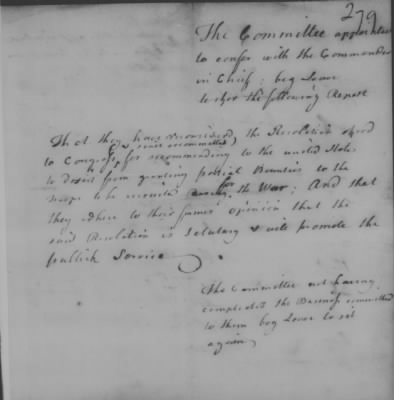 279
The Committee appointed
to confer with the Commander
in Chief; beg Leave
to the following Report
That they have reconsidered the Resolution offered
(since recommitted)
to Congress for recommending to the united States
to desist from granting partial Bounties to the
troops to be recruited for the War; And that
they adhere to their former opinion that the
said Resolution is salutary & will promote the
publick Service
The Committee not having
compleated the Business committed
to them beg Leave to sit
again